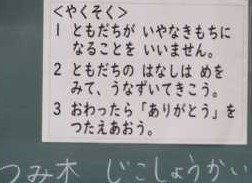 <やくそく>
1 ともだちが いやなきもちに
なることを いいません。
2 ともだちの はなしは めを
みて、うなずいてきこう。
3 おわったら「ありがとう」を
つたえあおう。
つみ木 じこしょうかい